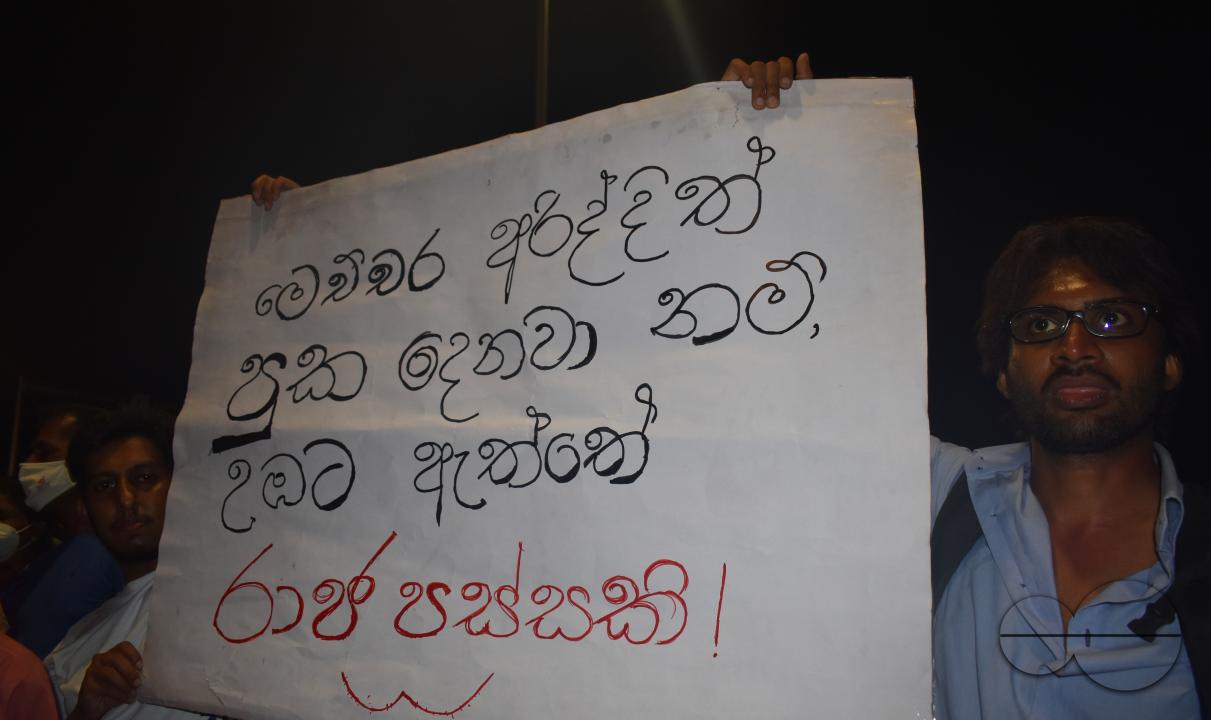 මෙච්චර අරිද්දිත්
පුක දෙනවා නම්,
උඹට ඇත්තේ
රාජ පස්සකි!